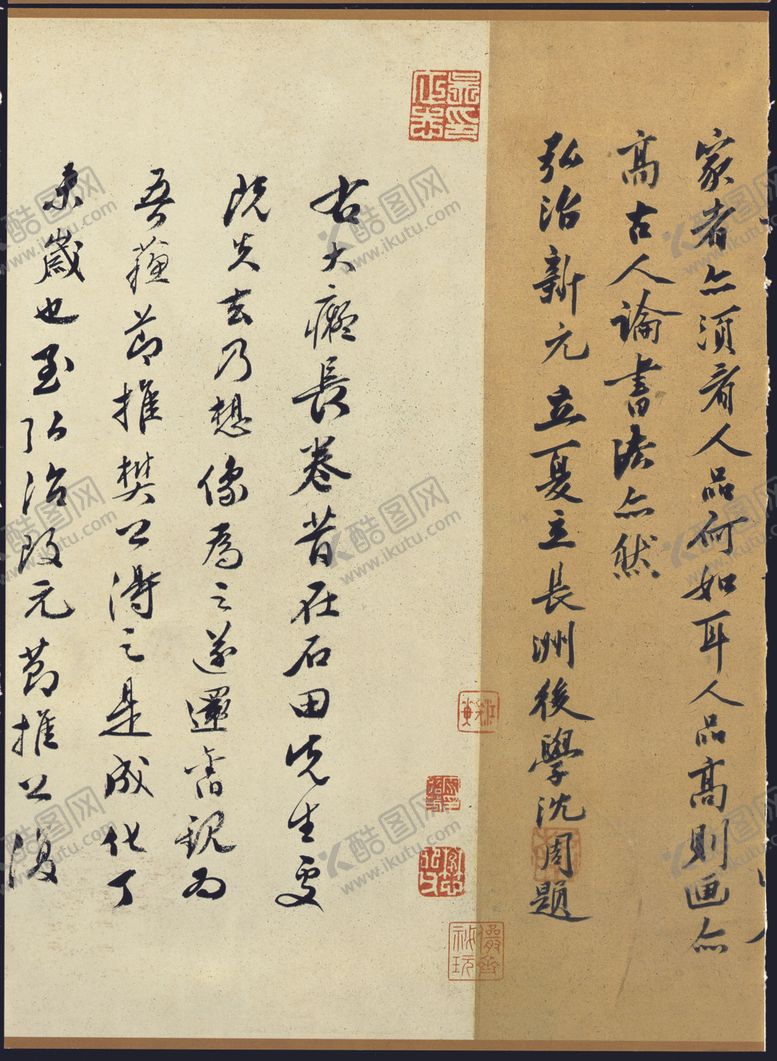 家者亦須看人品何如耳人品高則画亦
高古人論書法亦然
弘治新元立夏立長洲後學沈周題
右大癡長卷昔在石田先生處
既失去乃想像為之遂還舊觀為
吾蘇節推樊公得之是成化丁
未歲也至弘治改元節推公復
酷图网
www.ikutu.com